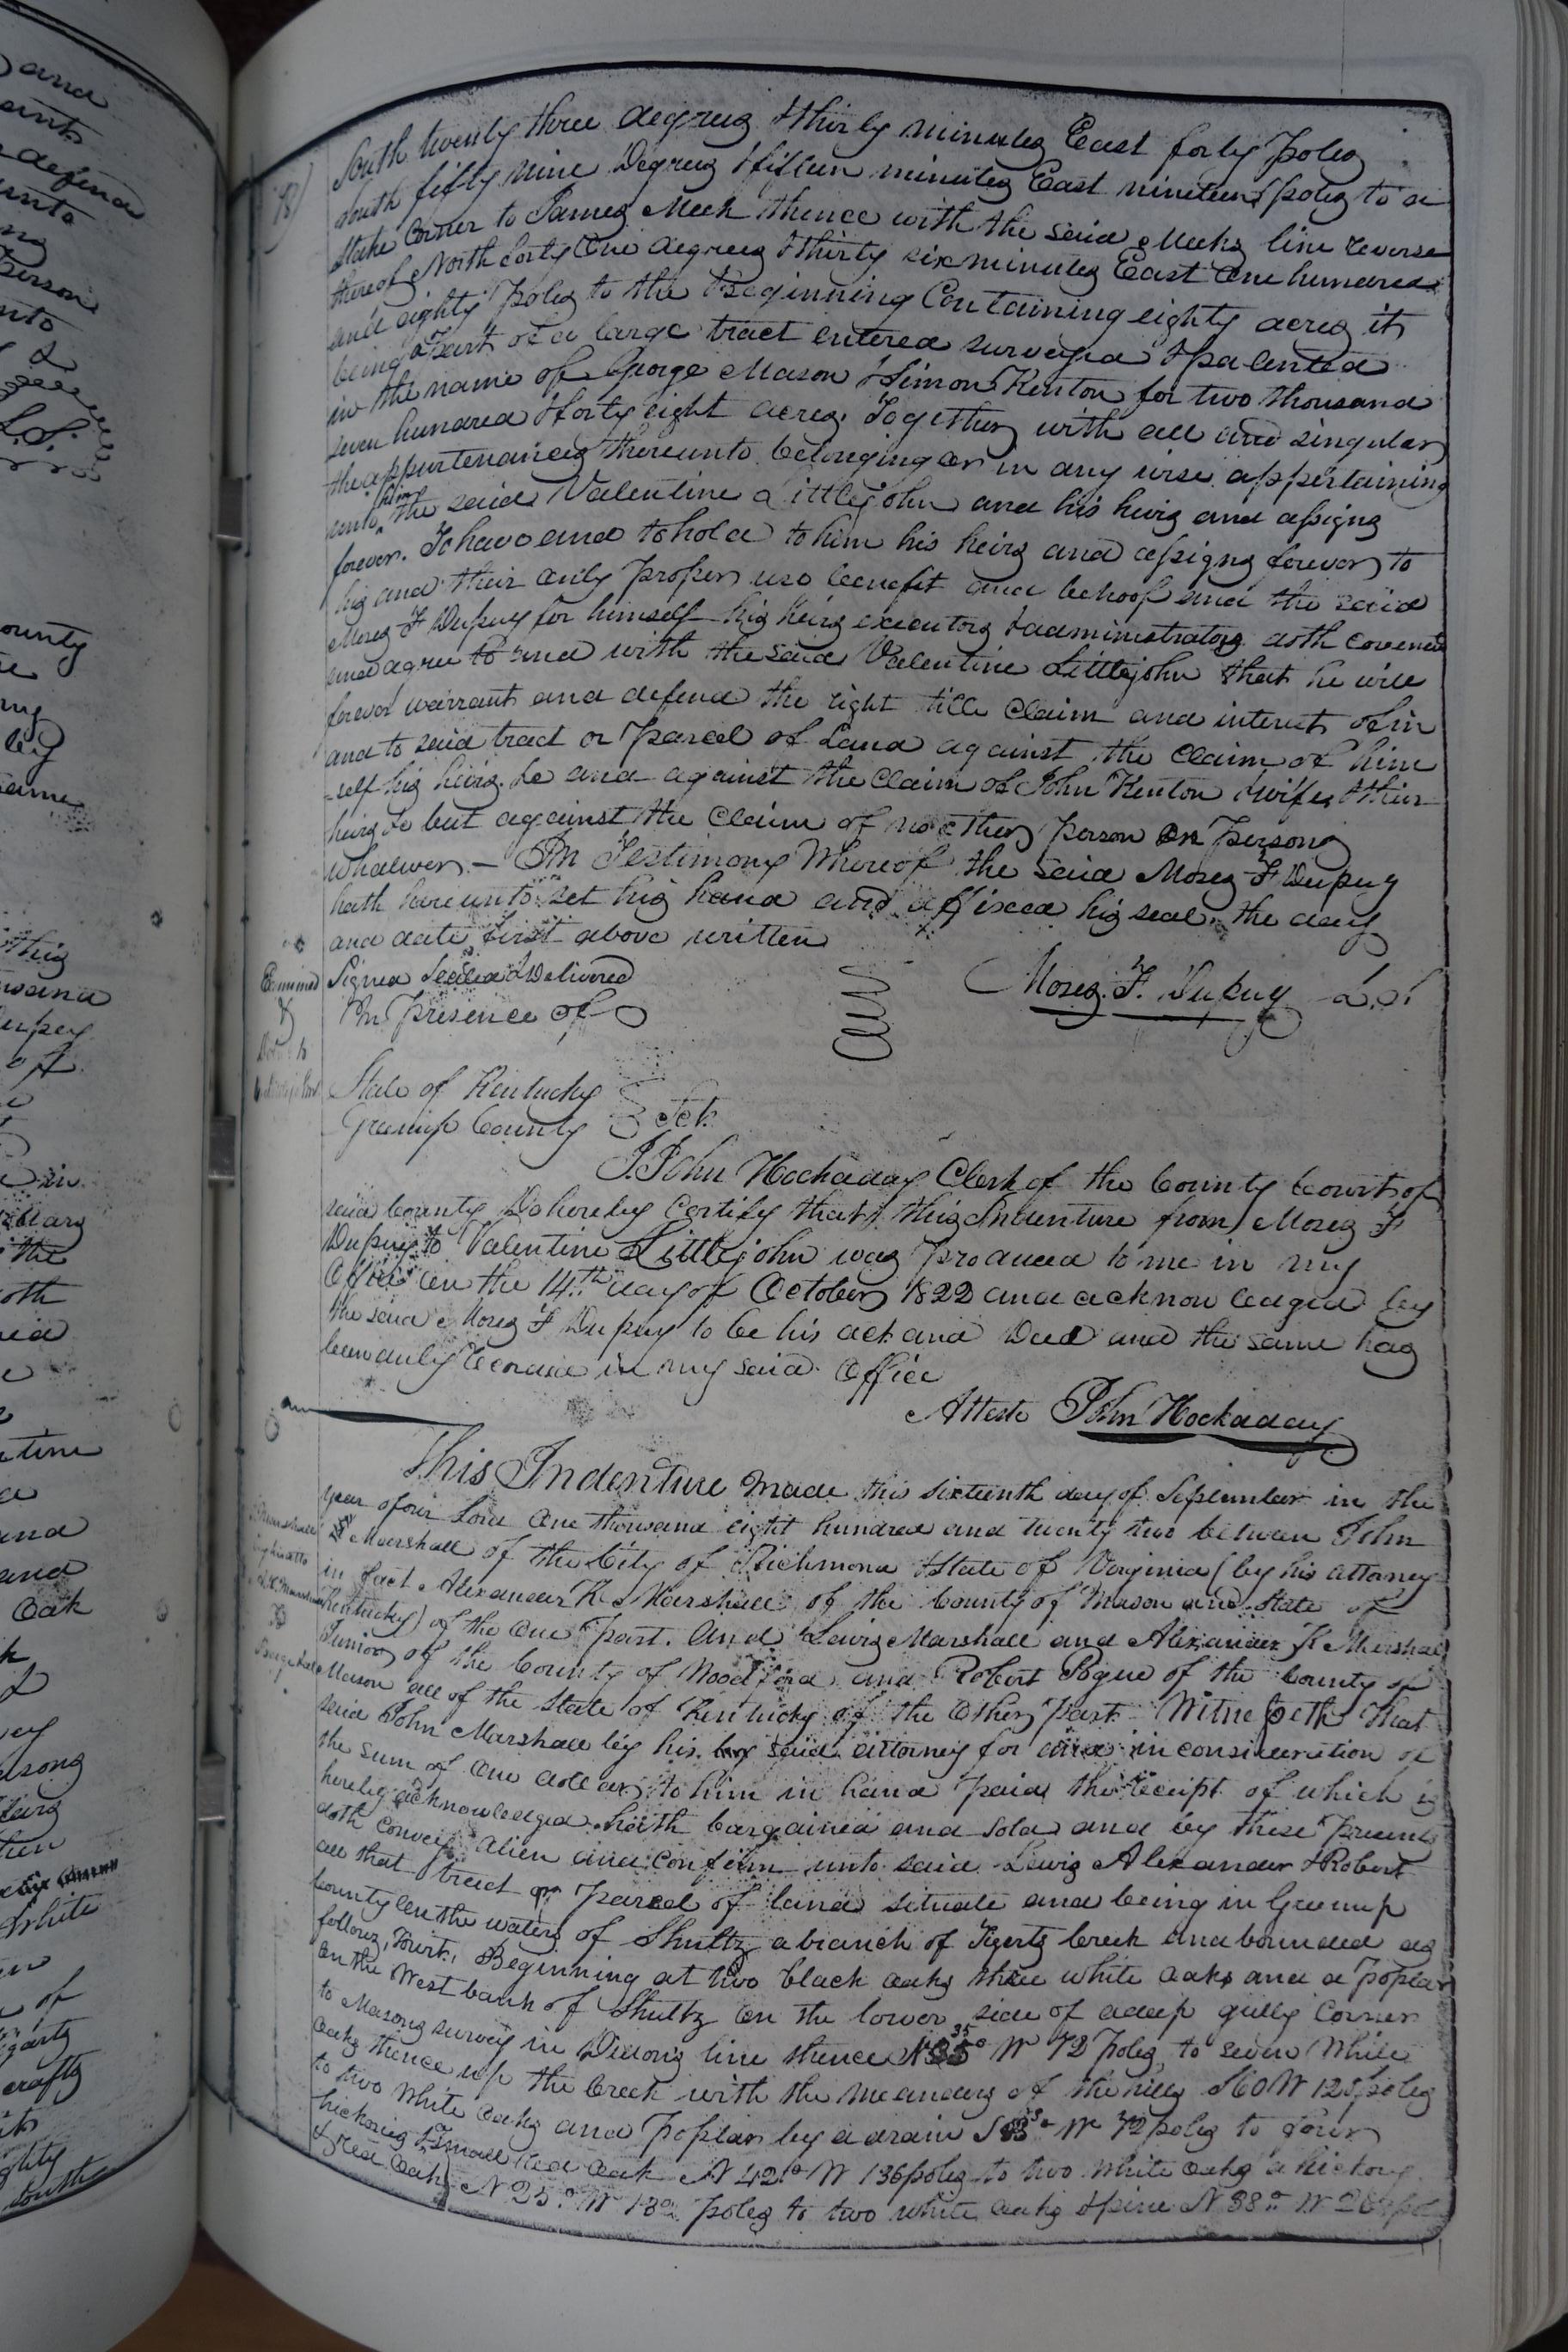 South twenty three degrees & thirty minutes East forty poles
South fifty nine Degrees & fifteen minutes East nineteen poles to a
Stake Corner to James Meek thence with the said Meeks line reverse
thereof North forty One degrees & thirty six minutes East One hundred
and eighty poles to the Beginning Containing eighty acres it
being a part of a large tract entered surveyed & patented
in the name of George Mason & Simon Kenton for two thousand
seven hundred & forty eight acres. Together with all and singular
the appurtenances thereunto belonging or in any wise appertaining
unto him the said Valentine Littlejohn and his heirs and assigns
forever. To have and to hold to him his heirs and assigns forever to
his and their only proper use benefit and behoof and the said
Moses F Dupuy for himself his heirs executors & administrators doth covenant
and agree to and with the said Valentine Littlejohn that he will
forever warrant and defend the right title Claim and interest of in
and to said tract or Parcel of Land against the Claim of him
self his heirs &c and against the Claim of John Kenton & wife & their
heirs &c but against the Claim of no other person or persons
whatever. — In Testimony Whereof the said Moses F Dupuy
hath hereunto set his hand and affixed his seal the day
and date first above written
Signed Sealed & Delivered
In Presence of
Moses. F. Dupuy L.S.
Examined
&
State of Kentucky
Greenup County Sct.
I John Hockaday Clerk of the County Court of
said County Do hereby Certify that this Indenture from Moses F
Dupuy to Valentine Littlejohn was produced to me in my
Office on the 14th day of October 1822 and acknowledged by
the said Moses F Dupuy to be his act and Deed and the same has
been duly Recorded in my said Office
Atteste John Hockaday
This Indenture made this sixteenth day of September in the
year of our Lord One thousand eight hundred and twenty two between John
Marshall of the City of Richmond & State of Virginia (by his attorney
in fact Alexander K Marshall of the County of Mason and State of
Kentucky) of the One Part. And Lewis Marshall and Alexander K Marshall
Junior of the County of Woodford and Robert Pogue of the County of
Mason all of the State of Kentucky of the Other Part Witnesseth That
said John Marshall by his said attorney for and in consideration of
the sum of One dollar to him in hand paid the receipt of which is
hereby acknowledged hath bargained and sold and by these Presents
doth convey alien and confirm unto said Lewis Alexander & Robert
all that tract or Parcel of land situate and being in Greenup
County on the waters of Shultz a branch of Tygerts Creek and bounded as
follows, Towit, Beginning at two black oaks three white oaks and a poplar
On the West bank of Shultz on the lower side of a deep gully Corner
to Masons survey in Dixons line thence N 35° W 72 poles to seven White
Oaks thence up the Creek with the meanders of the hills S60W 125 poles
to two White Oaks and Poplar by a drain S W 72 poles to four
hickories & Small Red Oak N 42° W 136 poles to two White oaks a hickory
& red Oak N 25° W poles to two white oaks & pine N 38° W